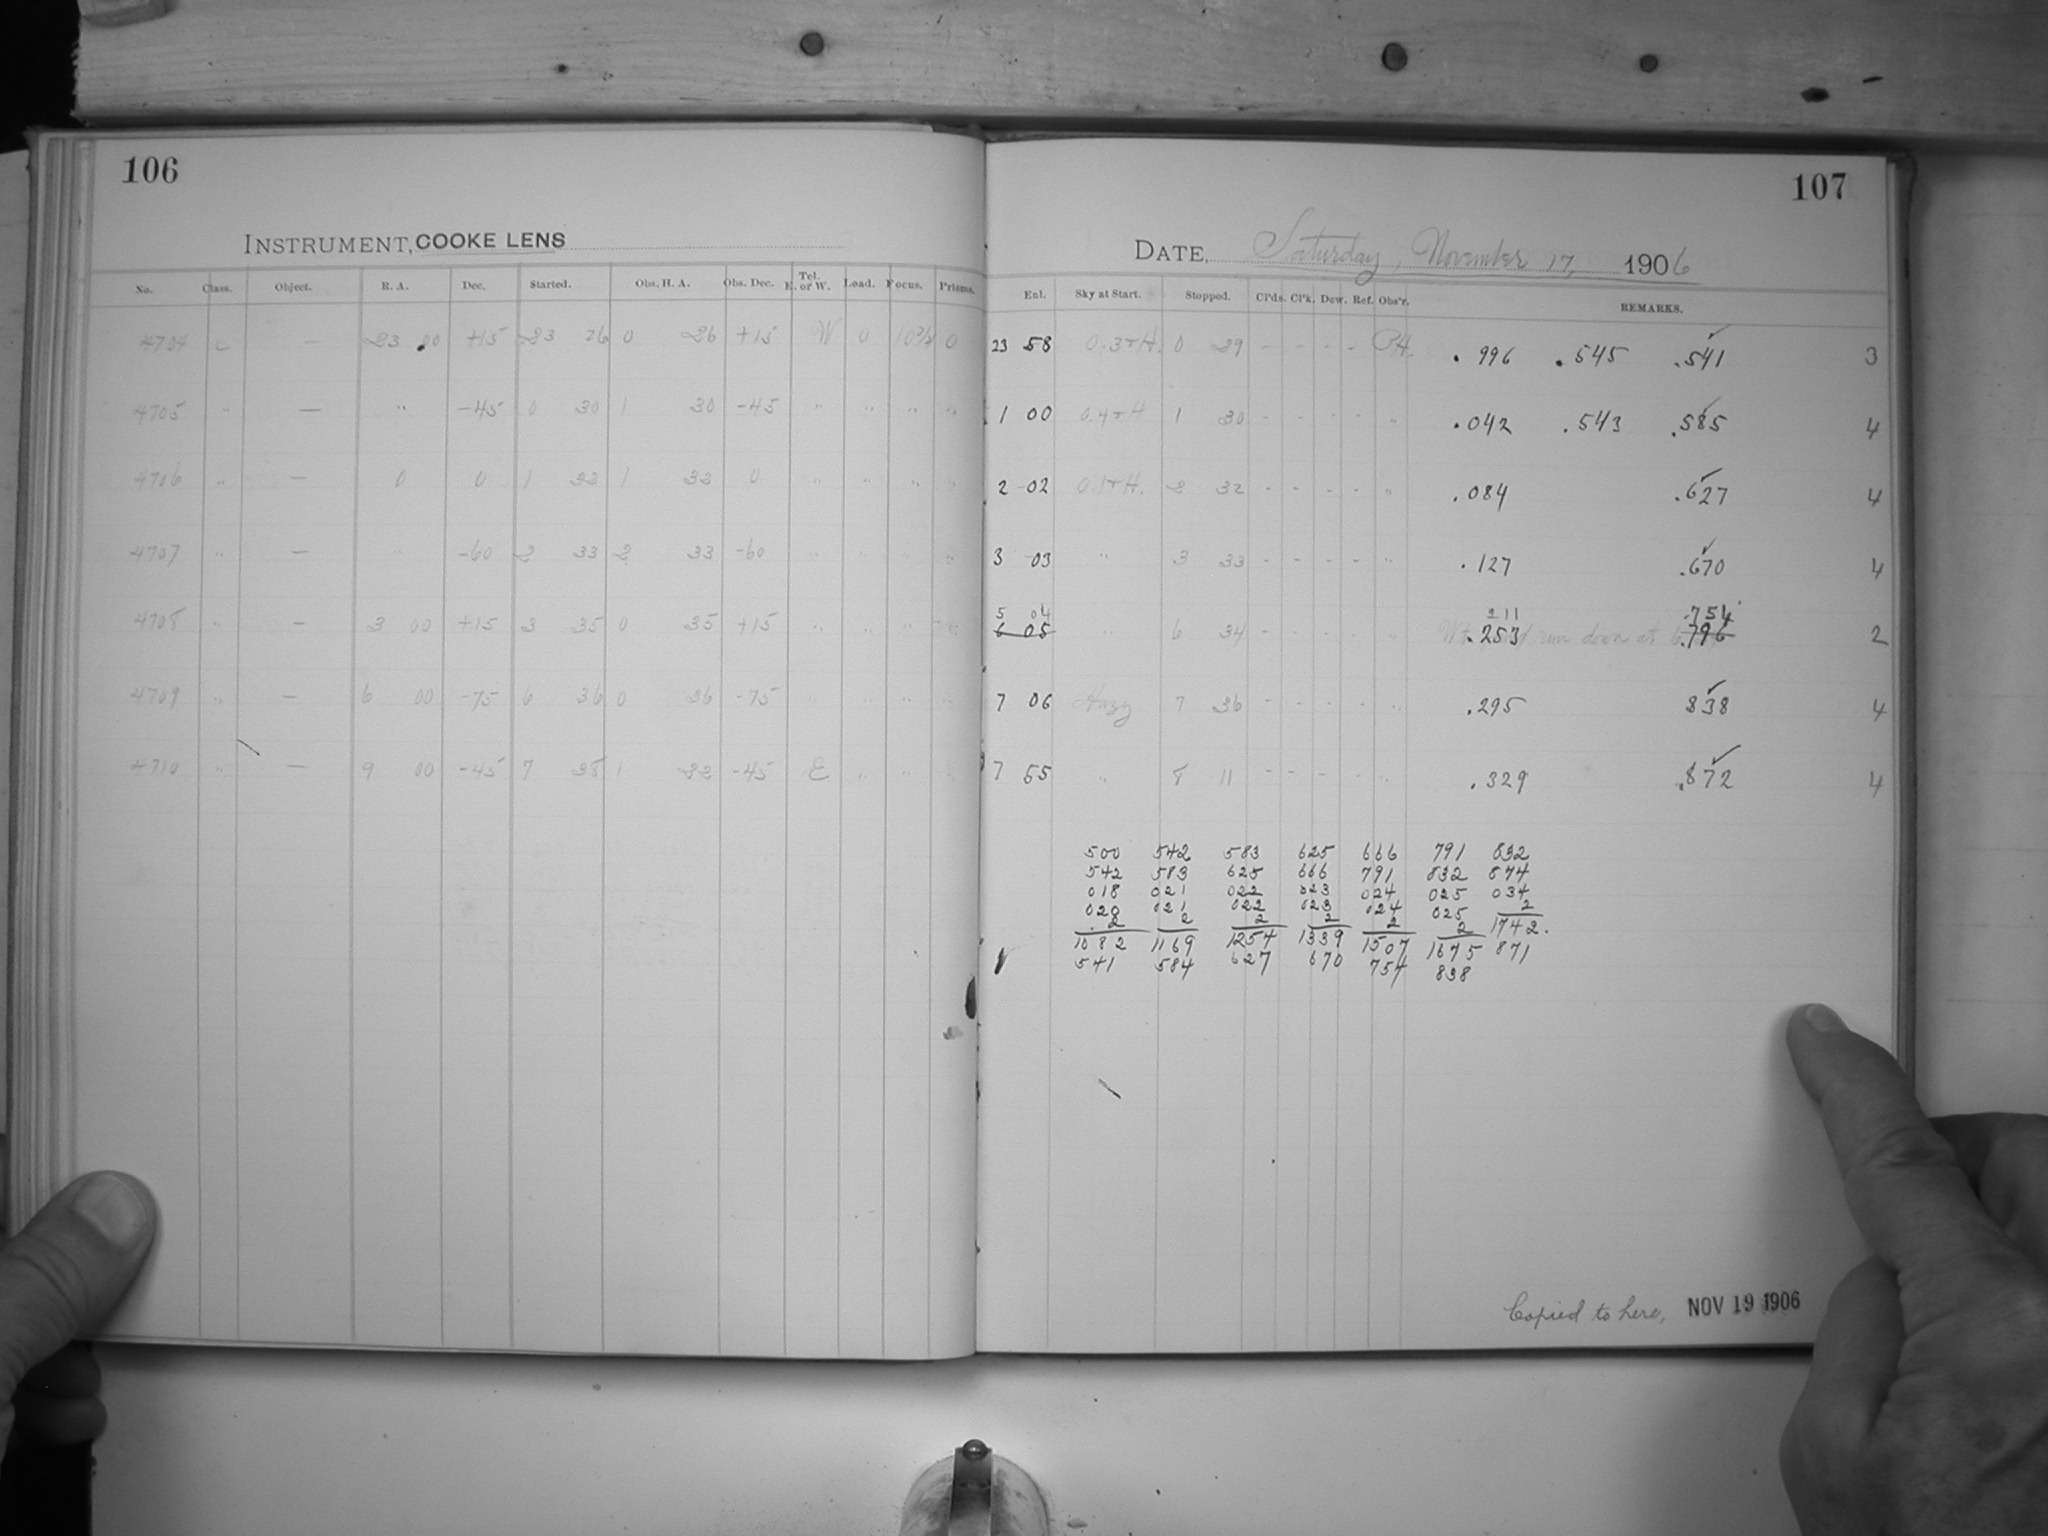 106
INSTRUMENT, COOKE LENS
No. Class. Object. R. A. Dec. Started. Obs. H. A. Obs. Dec. Tel. E. or W. Load. Focus. Prisms.
4704 L — 23 00 +15 23 26 0 26 +15 W 0 0
4705 " — " -45 0 30 1 30 -45 " " " "
4706 " — 0 0 1 32 1 32 0 " " " "
4707 " — " -60 2 33 2 33 -60 " " " "
4708 " — 3 00 +15 3 35 0 35 +15 " " " "
4709 " — 6 00 -75 6 36 0 36 -75 " " " "
4710 " — 9 00 -45 7 38 1 22 -45 E " " "
107
DATE, Saturday, November 17, 1906
Enl. Sky at Start. Stopped. Cl'ds. Cl'k. Dew. Ref. Obs'r. REMARKS.
23 58 0 29 - - - - .996 .545 .541 3
1 00 1 30 - - - - " .042 .543 .585 4
2 02 2 32 - - - - " .084 .627 4
3 03 " 3 33 - - - - " .127 .670 4
5 04 211 .754
6 05 " 6 34 - - - - " .253 run down at .796 2
7 06 Hazy 7 36 - - - - " .295 838 4
7 55 " 8 11 - - - - " .329 .872 4
500 542 583 625 666 791 832
542 583 625 666 791 832 874
018 021 022 023 024 025 034
020 021 022 023 024 025 2
2 2 2 2 2 2 1742.
1082 1169 1254 1339 1507 1675 871
541 584 627 670 754 838
Copied to here, NOV 19 1906